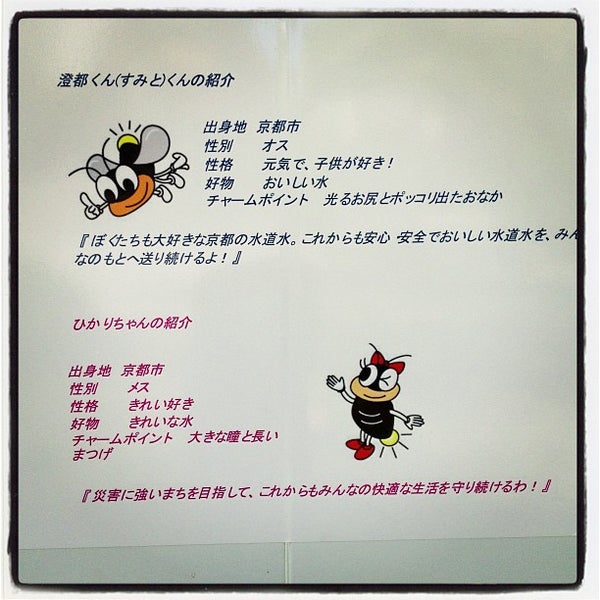 澄都くん(すみと)くんの紹介
出身地 京都市
性別 オス
性格 元気で、子供が好き!
好物 おいしい水
チャームポイント 光るお尻とポッコリ出たおなか
『ぼくたちも大好きな京都の水道水。これからも安心・安全でおいしい水道水を、みん
なのもとへ送り続けるよ!』
ひかりちゃんの紹介
出身地 京都市
性別 メス
性格 きれい好き
好物 きれいな水
チャームポイント 大きな瞳と長い
まつげ
『災害に強いまちを目指して、これからもみんなの快適な生活を守り続けるわ!』